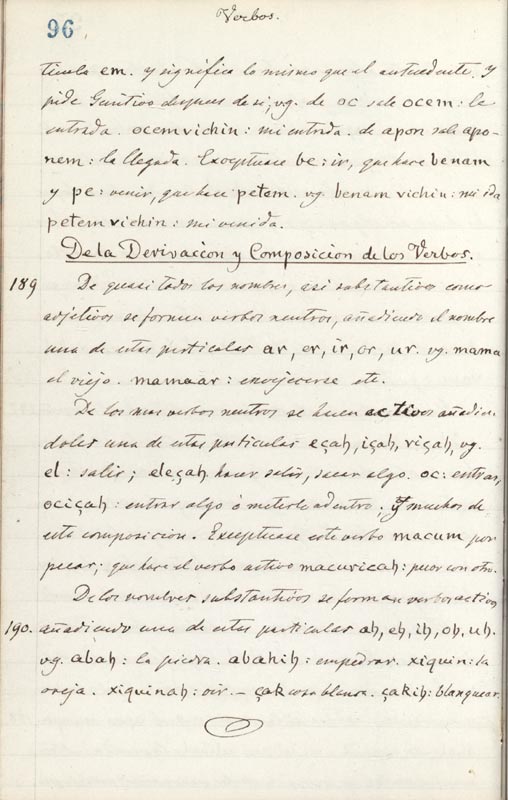 Verbos.
96
ticula em. y significa lo mismo que el antecedente. y
pide Genitivo despues de si; vg. de oc sale ocem: la
entrada. ocem vichin: mi entrada. de apon sale apo-
nem: la llegada. Exceptuase be: ir, que hace benam
y pe: venir, que hace petem. vg. benam vichin: mi ida
petem vichin: mi venida.
De la Derivacion y Composicion de los Verbos.
189 De quasi todos los nombres, asi substantivos como
adjetivos se forman verbos neutros, añadiendo al nombre
una de estas particulas ar, er, ir, or, ur. vg. mama
el viejo. mamaar: envejecerse etc.
De los mas verbos neutros se hacen activos añadien
doles una de estas particulas eçaḥ, içaḥ, viçaḥ, vg.
el: salir; eleçaḥ hacer salir, sacar algo. oc: entrar,
ociçaḥ: entrar algo ó meterlo adentro. y muchos de
esta composicion. Exceptuase este verbo macum por
pecar; que hace el verbo activo macuricaḥ: pecar con otro.
De los nombres substantivos se forman verbos activos
190. añadiendo una de estas particulas aḥ, eḥ, iḥ, oḥ, uḥ.
vg. abaḥ: la piedra. abaḥiḥ: empedrar. xiquin: la
oreja. xiquinaḥ: oir. – çak cosa blanca. çakiḥ: blanquear.